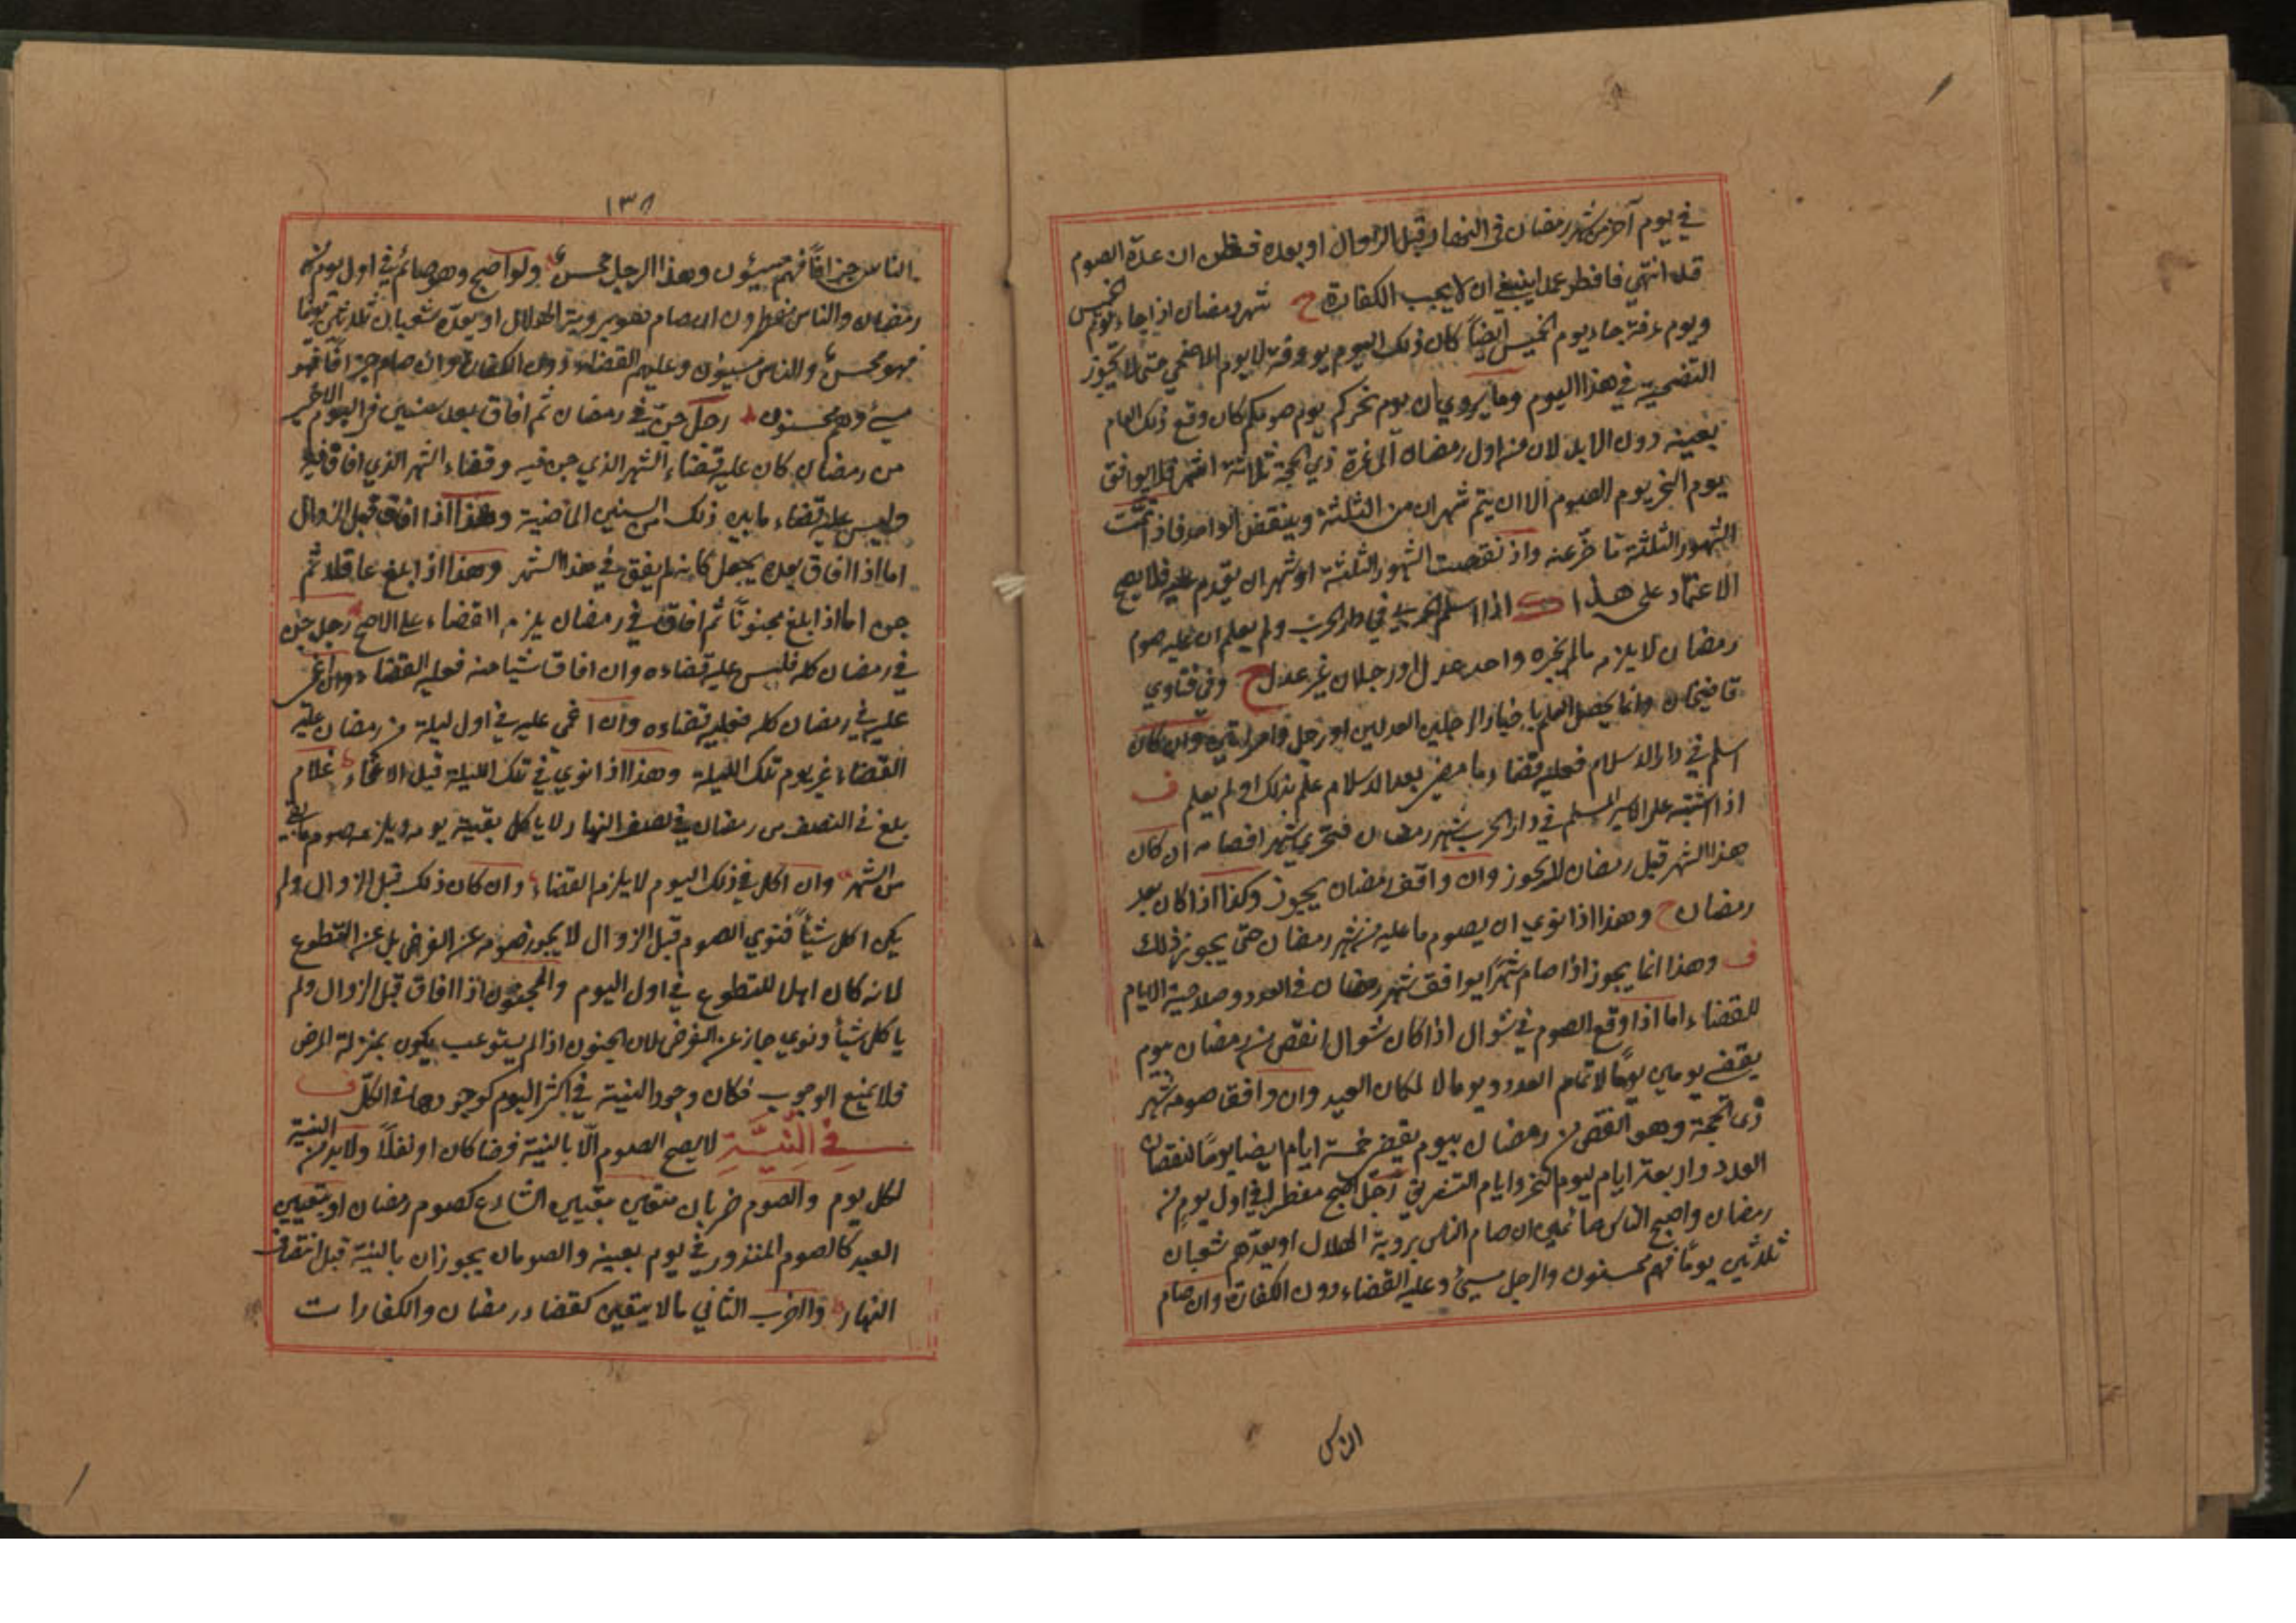 في يوم آخر من شهر رمضان في النهار قبل الزوال او بعده فظن ان عدة الصوم
قد انتهي فافطر عمدا ينبغي ان لا يجب الكفارة ح شهر رمضان اذا جاء يوم الخميس
ويوم عرفة جاء يوم الخميس ايضاً كان ذلك اليوم يوم عرفة لا يوم الاضحي حتى لا يجوز
التضحية في هذا اليوم وما يروي ان يوم نحركم يوم صومكم كان وقع ذلك العام
بعينه دون الابد لان من اول رمضان الى غرة ذي الحجة ثلاثة اشهر فلا يوافق
يوم النحر يوم الصوم الا ان يتم شهران من الثلثة وينقض الواحد فاذا تمت
الشهور الثلثة تأخر عنه واذ نقصت الشهور الثلثة او شهران يقدم عليه فلا يصح
الاعتماد على هذا اذا اسلم الحربي في دار الحرب ولم يعلم ان عليه صوم
رمضان لا يلزمه مالم يخبره واحد عدل او رجلان غير عدل ح وفي فتاوي
قاضيخان وانما يحصل العلم باخبار الرجلين العدلين او رجل وامراتين وان كان
اسلم في دار الاسلام فعليه قضاء ما مضى بعد الاسلام علم بذلك او لم يعلم ف
اذا اشتبه على الاسير المسلم في دار الحرب شهر رمضان فتحري شهرا فصامه ان كان
هذا الشهر قبل رمضان لا يجوز وان وافق رمضان يجوز وكذا اذا كان بعد
رمضان ح وهذا اذا نوي ان يصوم ما عليه من شهر رمضان حتى يجوز ذلك
ف وهذا انما يجوز اذا صام شهرًا يوافق شهر رمضان في العدد وصلاحية الايام
للقضاء اما اذا وقع الصوم في شوال اذا كان شوال انقص من رمضان بيوم
يقضي يومين يومًا لاتمام العدد ويوما لمكان العيد وان وافق صومه شهر
ذي الحجة وهو انقص من رمضان بيوم يقضي خمسة ايام ايضا يومًا لنقصان
العدد واربعة ايام ليوم النحر وايام التشريق رجل اصبح مفطرا في اول يوم من
رمضان واصبح الناس صائمين ان صام الناس بروية الهلال او بعدهم شعبان
ثلثين يومًا فهم محسنون والرجل مسيئ وعليه القضاء دون الكفارة وان صام
الناس
١٣٨
الناس جزافًا فهم مسيئون وهذا الرجل محسن ولو اصبح وهو صائم في اول يوم من
رمضان والناس مفطرون ان صام هو بروية الهلال او بعده شعبان ثلثين يومًا
فهو محسن والناس مسيئون وعليهم القضاء دون الكفارة وان صام جزافًا فهو
مسيئ وهم محسنون رجل جن في رمضان ثم افاق بعد سنين في اليوم الاخير
من رمضان كان عليه قضاء الشهر الذي جن فيه وقضاء الشهر الذي افاق فيه
وليس عليه قضاء ما بين ذلك من السنين الماضية وهذا اذا افاق قبل الزوال
اما اذا افاق بعده يجعل كانه لم يفق في هذا الشهر وهذا اذا بلغ عاقلا ثم
جن اما اذا بلغ مجنونًا ثم افاق في رمضان يلزمه القضاء على الاصح رجل جن
في رمضان كله فليس عليه قضاءه وان افاق شيا منه فعليه القضاء وان اغمي
عليه في رمضان كله فعليه قضاءه وان اغمي عليه في اول ليلة من رمضان عليه
القضاء غير يوم تلك الليلة وهذا اذا نوي في تلك الليلة قبل الاغماء غلام
بلغ في النصف من رمضان في نصف النهار لا ياكل بقية يومه ويلزمه صوم ما بقي
من الشهر وان اكل في ذلك اليوم لا يلزمه القضاء وان كان ذلك قبل الزوال ولم
يكن اكل شيأً فنوي الصوم قبل الزوال لا يجوز صومه عن الفرض بل عن التطوع
لانه كان اهلا للتطوع في اول اليوم والمجنون اذا افاق قبل الزوال ولم
ياكل شيأ ونوي جاز عن الفرض لان الجنون اذا لم يستوعب يكون بمنزلة المرض
فلا يمنع الوجوب فكان وجود النية في اكثر اليوم كوجودها في الكل ف
في النِّيَّةِ لا يصح الصوم الّا بالنية فرضا كان او نفلًا ولا بد من النية
لكل يوم والصوم ضربان متعين بتعيين الشارع كصوم رمضان او بتعيين
العبد كالصوم المنذور في يوم بعينه والصومان يجوزان بالنية قبل انتصاف
النهار والضرب الثاني مالا يتعين كقضاء رمضان والكفارات